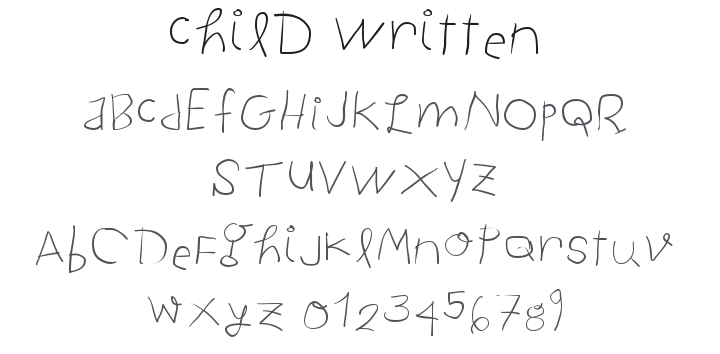 chilD written
aBcdEfGHiJKLmNOpQR
STUVWXYZ
AbCDeFghiJKlMnoPQrstuv
wxyz 0123456789